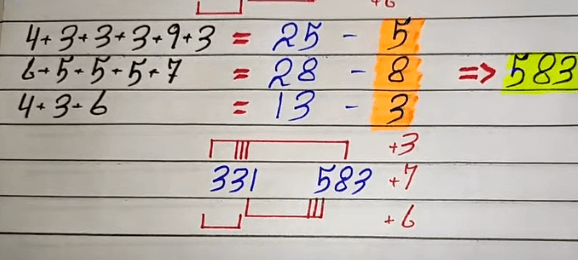 +6
4+3+3+3+9+3 = 25 - 5
6+5+5+5+7 = 28 - 8 => 583
4+3+6 = 13 - 3
+3
331 583 +7
+6